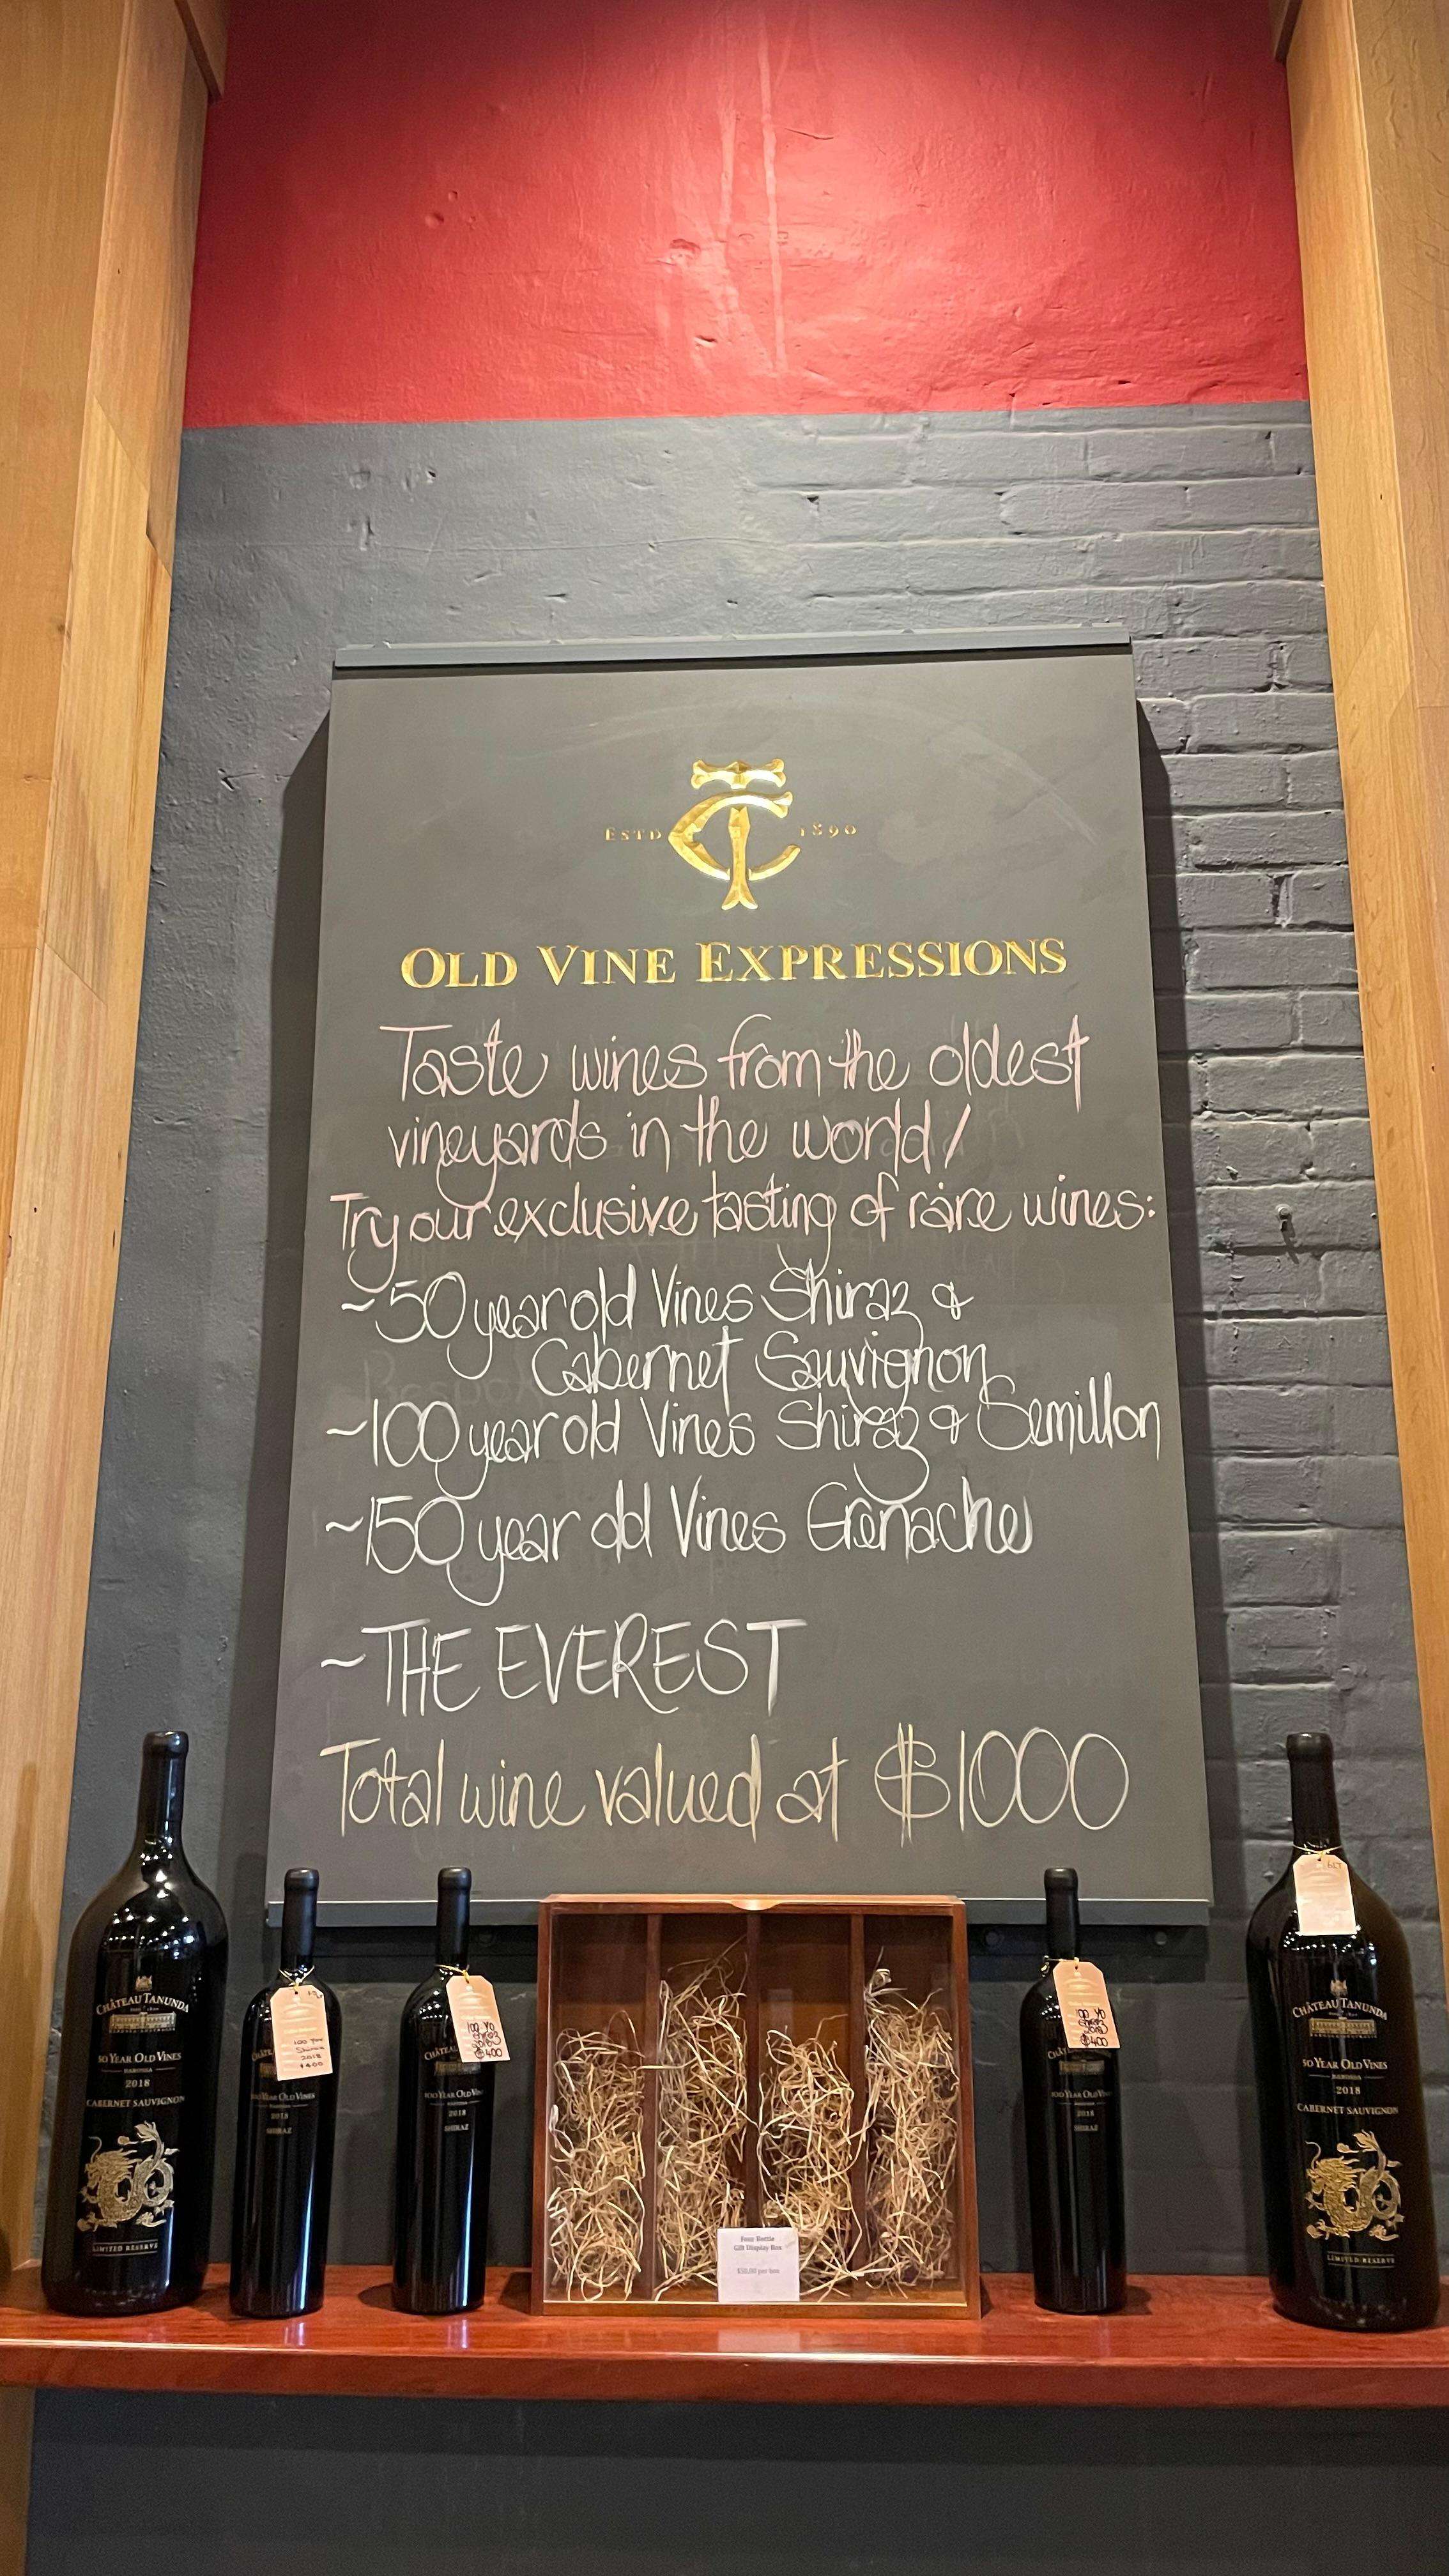 ESTD TC 1890
OLD VINE EXPRESSIONS
Taste wines from the oldest
vineyards in the world!
Try our exclusive tasting of rare wines:
~50 year old Vines Shiraz &
Cabernet Sauvignon
~100 year old Vines Shiraz & Semillon
~150 year old Vines Grenache
~THE EVEREST
Total wine valued at $1000
CHÂTEAU TANUNDA
50 YEAR OLD VINES
BAROSSA
2018
CABERNET SAUVIGNON
LIMITED RESERVE
100 Year
Shiraz
2018
$400
100 YEAR OLD VINES
BAROSSA
2018
SHIRAZ
100 YO
Shiraz
2018
$400
CHÂTEAU
100 YEAR OLD VIN
2018
SHIRAZ
Four Bottle
Gift Display Box
$50.00 per box
100 YO
Shiraz
2018
$400
100 YEAR OLD VIN
2018
SHIRAZ
CHÂTEAU TANUNDA
50 YEAR OLD VINES
BAROSSA
2018
CABERNET SAUVIGNON
LIMITED RESERVE